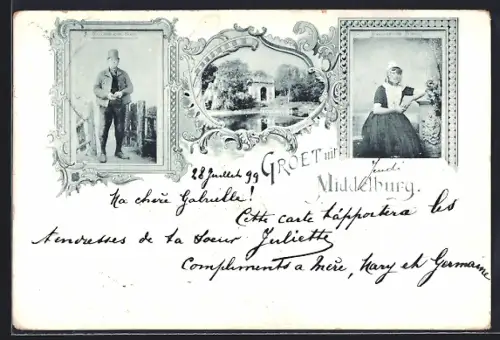 28 Juillet 99
GROET uit
Jeudi
Middelburg.
Ma chère Gabrielle!
Cette carte t'apportera les
tendresses de ta soeur Juliette
Compliments a Mère, Mary et Germaine